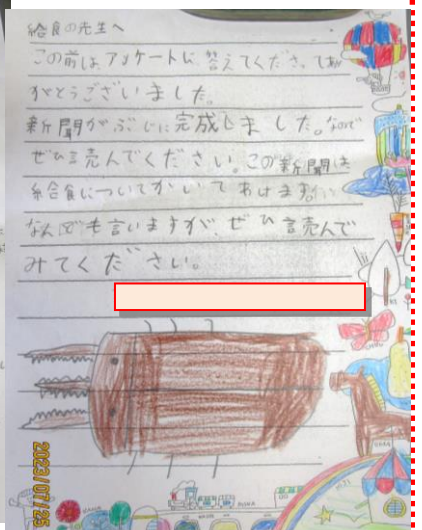 給食の先生へ
この前は、アンケートに、答えてくださってあ
りがとうございました。
新聞がぶじに完成しました。なので
ぜひ読んでください。この新聞は
給食についてかいてあります。
なん回も言いますが、ぜひ読んで
みてください。
2023/07/25